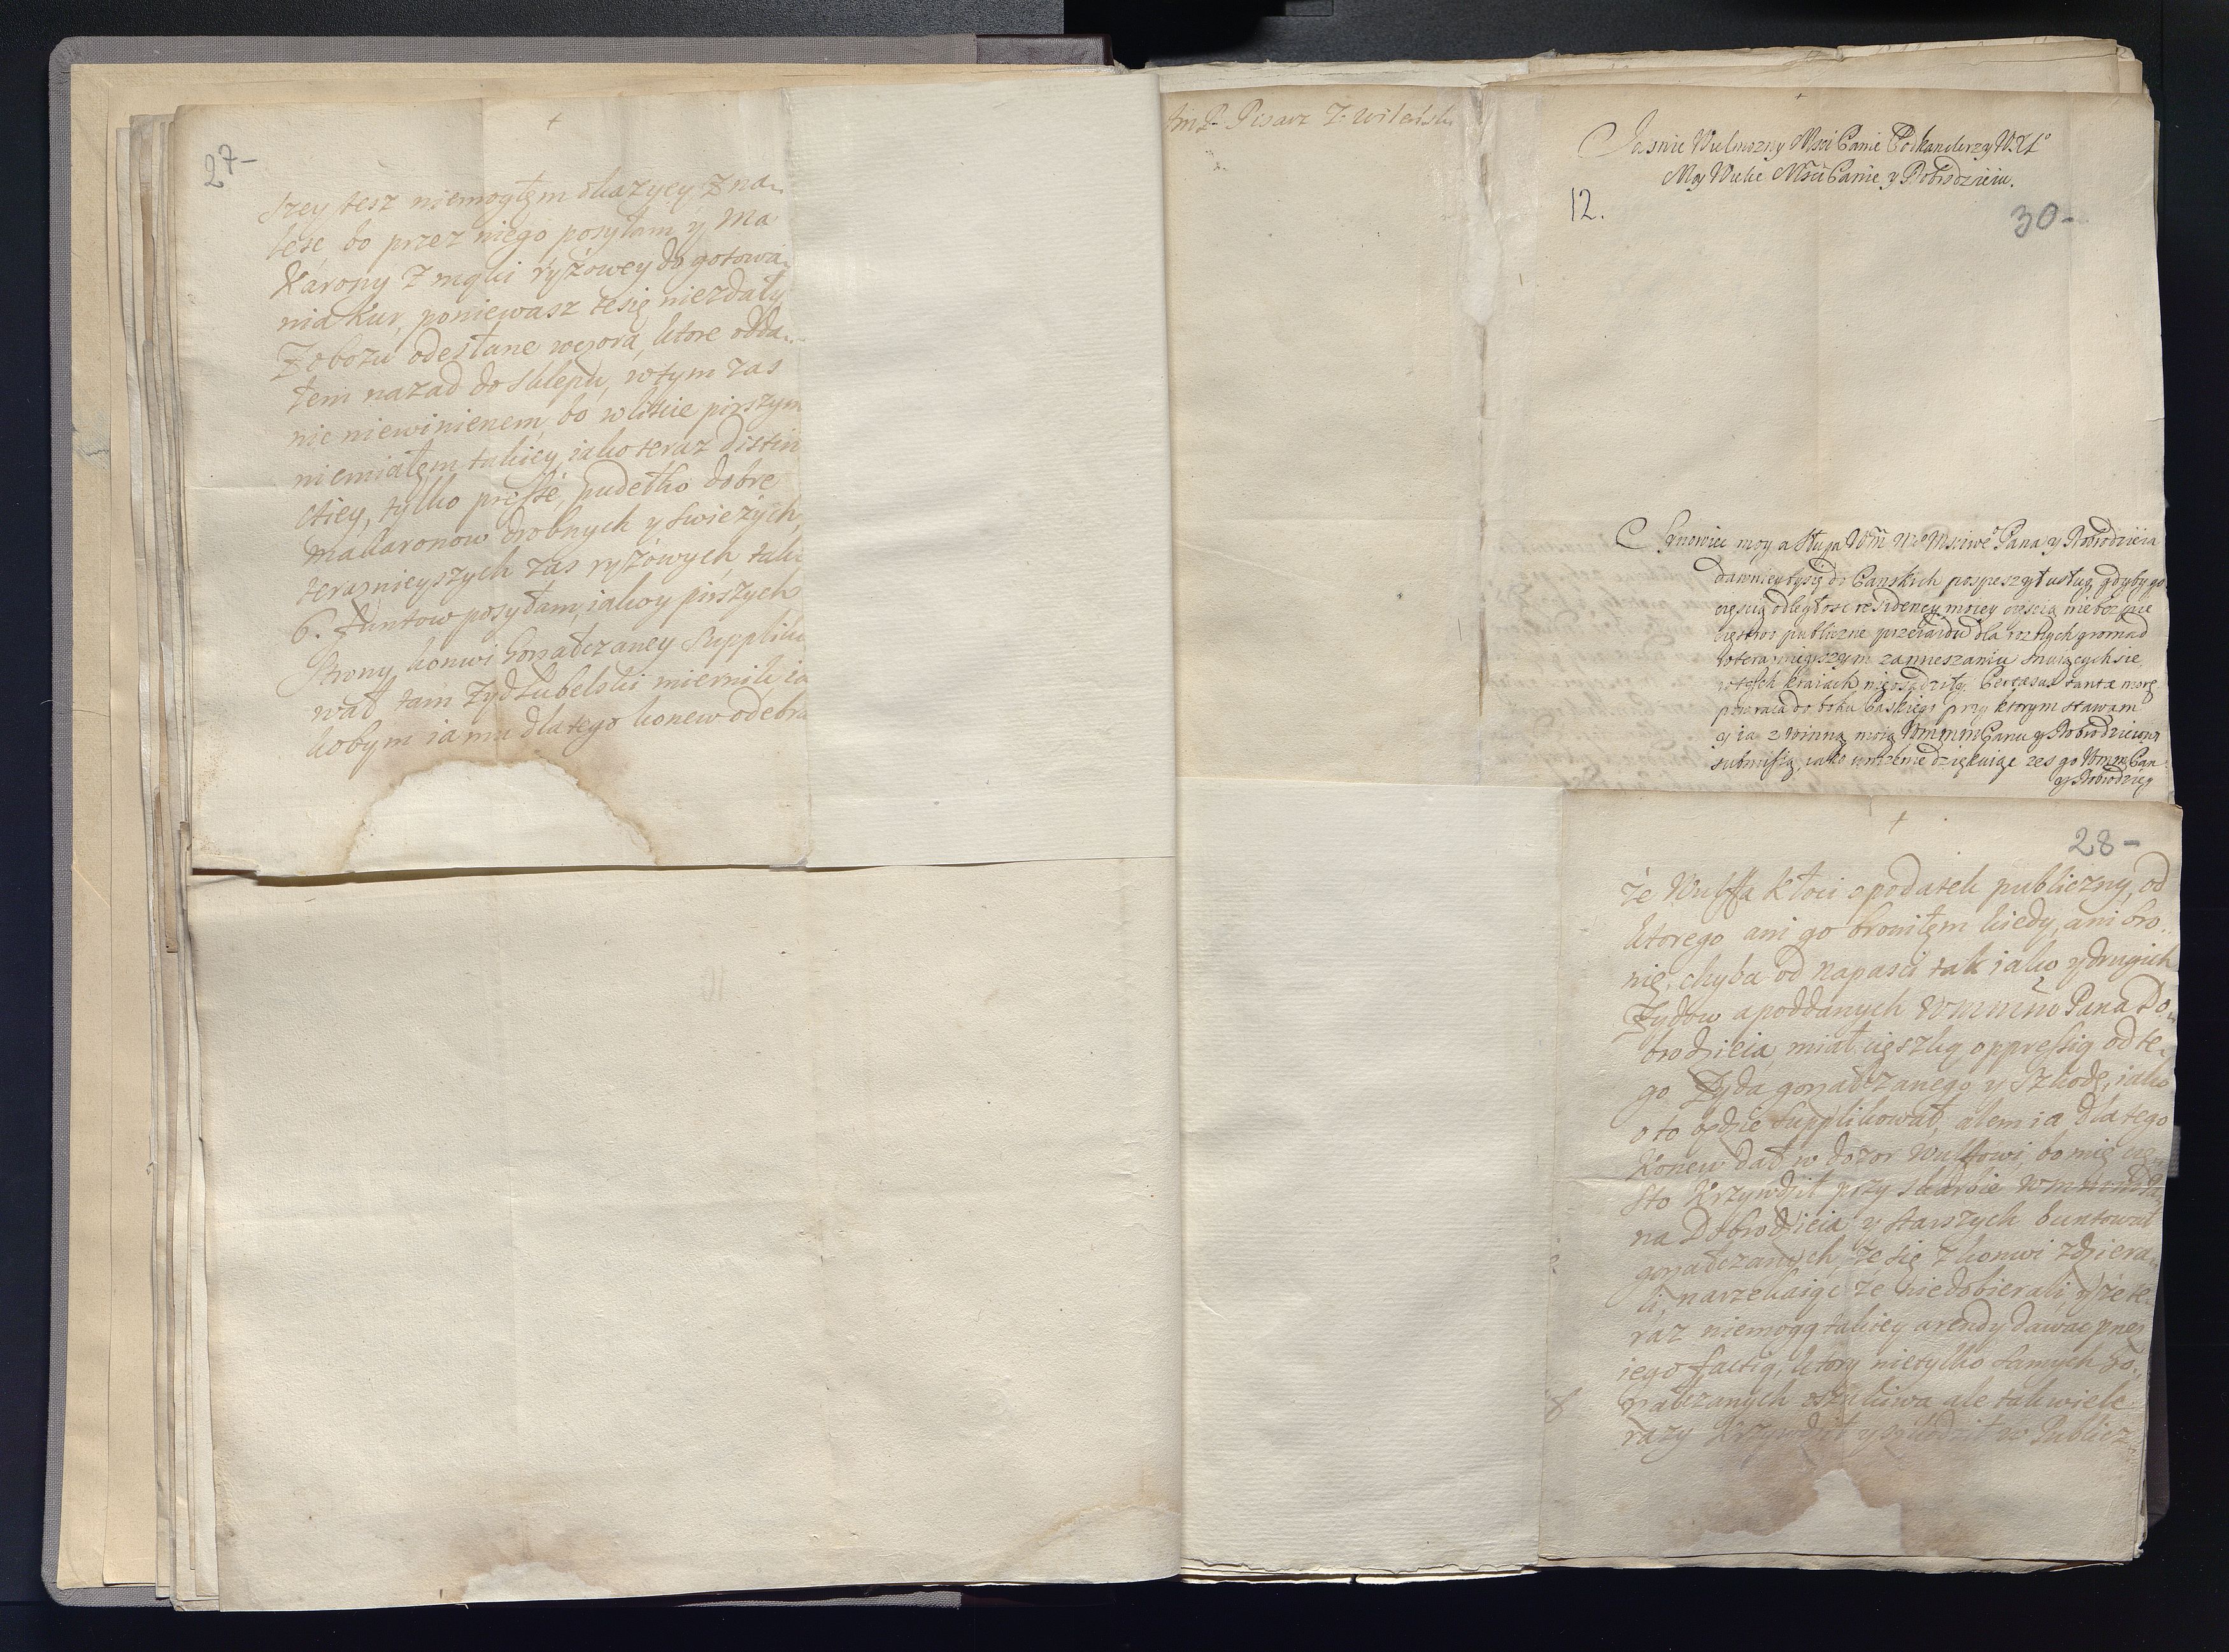 27-
szey tesz niemogłem okazycy zna„
leść bo przez niego posyłam y Ma
karony z mąki ryżowey do gotowa„
nia kur, poniewasz te się niezdały
z obozu odesłane wczora, ktore odda„
łem nazad do sklepu, w tym zas
nic niewinienem, bo w liście pirszym
niemiałem takiey iako teraz distin
ctiey, tylko prosse, pudełko dobre
makaronow drobnych y swieżych,
teraznieyszych zas ryżowych tak
6. funtow posyłam, iakoy pirszych
Strony konwi Goraczaney Suppliko
wał tam Żyd Lubelski mienił, ia
kobym ia mu dlatego konew odebra
ImP. Pisarz Z. Wileński
Jasnie Wielmozny Msci Panie Podkanclerzy W.X.L°
Moy Wielce Mści Panie y Dobrodzieiu.
12.
30-
Synowiec moy a sługa Wm Msciwe° Pana y Dobrodzieia
dawniey by się do Panskich pospieszył usług, gdyby go
częscią odległosc residencyi moiey częscią niebespie
częstwo publiczne przeiazdu dla roznych gromad
w teraznieyszym zamieszaniu snuiących sie
w tych kraiach nie
powraca do boku Paskiego przy ktorym stawam
y ia z winną moią WmmmPanu y Dobrodzieiowi
submissią, iako uniżenie dziękuię zes go WmmPan
y Dobrodziey
28-
że Wulffa kłoci o podatek publiczny, od
ktorego ani go broniłem kiedy, ani bro„
nię, chyba od napasci tak iako y drugich
Żydow a poddanych Wmmm Pana Do„
brodzieia, miał ięszkę oppressią od te„
go Żyda goraczanego y szkodę, iako
o to będzie supplikował, alem ia dlatego
Konew dał w dozor Wulffowi, bo mię czę„
sto krzywdził przy skarbie WmmmPa„
na Dobrodzieia, y starszych buntował
goraczanych, że się z konwi zdziera„
li, narzekaiąc że niedobierali, y że te„
raz niemogą takiey arendy dawać przez
iego factią, ktory nietylko samych Go„
raczanych oszukiwa ale tak wiele
razy krzywdził y szkodził w Publicz„